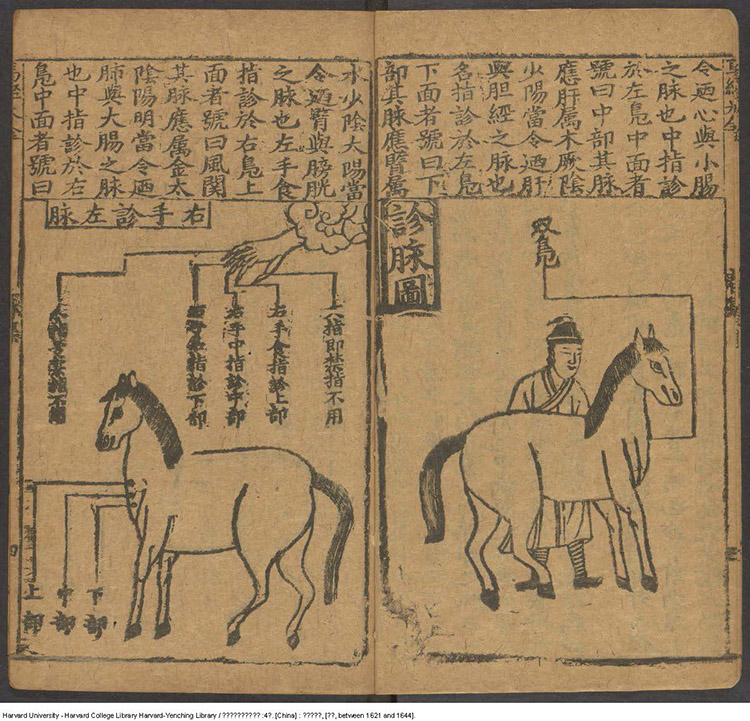 令廼心與小腸
之脉也中指診
於左鳬中面者
號曰中部其脉
應肝属木厥陰
少陽當令廼肝
與胆經之脉也
名指診於左鳬
下面者號曰下
部其脉應腎属
診脉圖
双鳬
水少陰太陽當
令廼腎與膀胱
之脉也左手食
指診於右鳬上
面者號曰風関
其脉應属金太
陰陽明當令廼
肺與大腸之脉
也中指診於右
鳬中面者號曰
右手診左脉
大指即禁指不用
右手食指診上部
右手中指診中部
右手名指診下部
下部
中部
上部
Harvard University - Harvard College Library Harvard-Yenching Library / ?????????? :4?. [China] : ?????, [??, between 1621 and 1644].